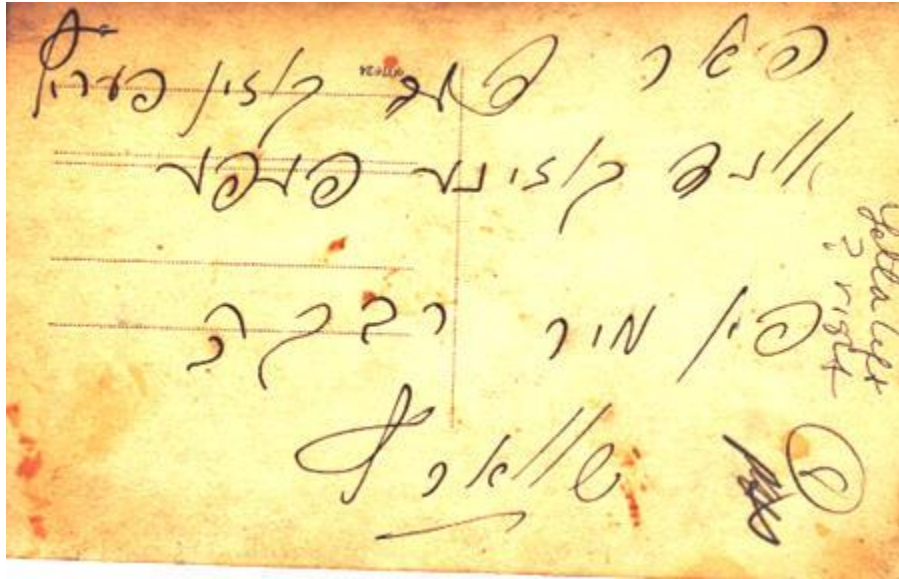 פאר קוזין פעריץ
קוזינע פעפע
פון מיר רבקה
שווארץ
Yetta left
? right
8